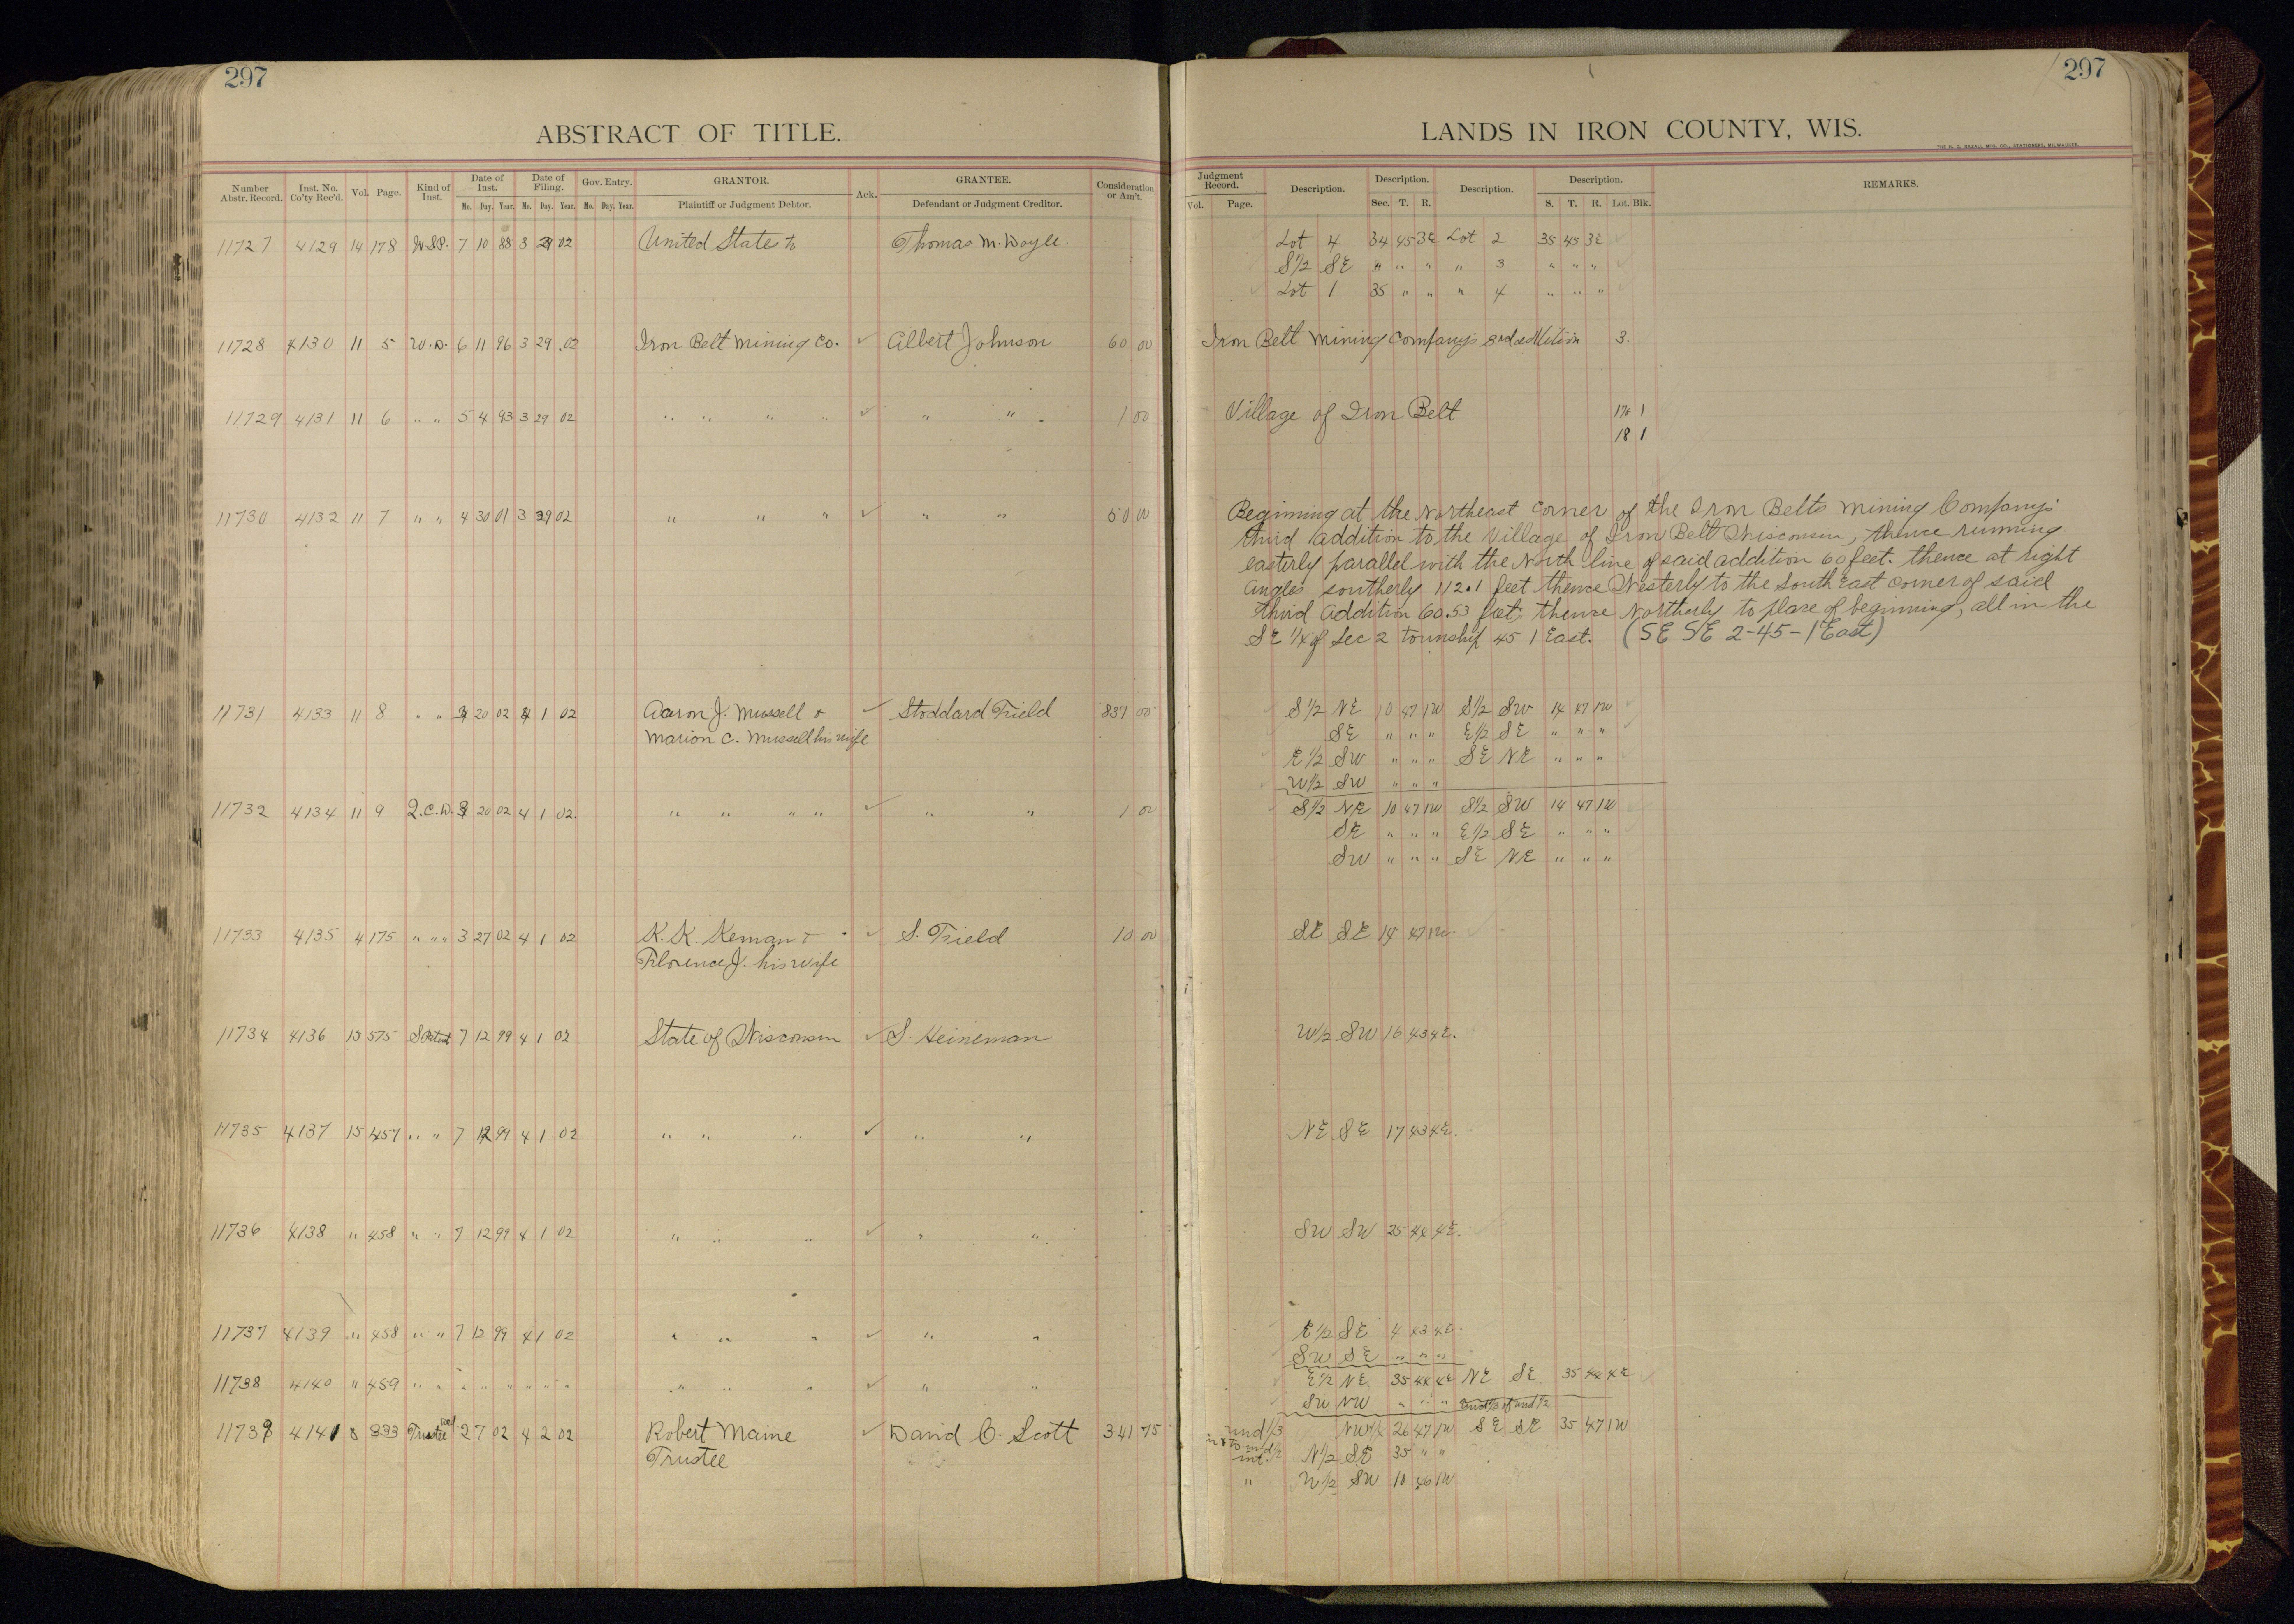 297
ABSTRACT OF TITLE.
Number Abstr. Record. Inst. No. Co'ty Rec'd. Vol. Page. Kind of Inst. Date of Inst. Mo. Day. Year. Date of Filing. Mo. Day. Year. Gov. Entry. Mo. Day. Year. GRANTOR. Plaintiff or Judgment Debtor. Ack. GRANTEE. Defendant or Judgment Creditor. Consideration or Am't.
11727 4129 14 178 7 10 88 3 29 02 United States to Thomas M. Doyle.
11728 4130 11 5 W.D. 6 11 96 3 29 02 Iron Belt Mining Co. ✓ Albert Johnson 60 00
11729 4131 11 6 " " 5 4 93 3 29 02 " " " " ✓ " " 1 00
11730 4132 11 7 " " 4 30 01 3 29 02 " " " ✓ " " 60 00
11731 4133 11 8 " " 3 20 02 4 1 02 Aaron J. Mussell & ✓ Stoddard Field 837 00
Marion C. Mussell his wife
11732 4134 11 9 Q.C.D. 3 20 02 4 1 02. " " " " ✓ " " 1 00
11733 4135 4 175 " " " 3 27 02 4 1 02 K. K. Kennan & ✓ S. Field 10 00
Florence J. his wife
11734 4136 15 575 7 12 99 4 1 02 State of Wisconsin ✓ S. Heineman
11735 4137 15 457 " " 7 12 99 4 1 02 " " " ✓ " "
11736 4138 " 458 " " 7 12 99 4 1 02 " " " ✓ " "
11737 4139 " 458 " " 7 12 99 4 1 02 " " " ✓ " "
11738 4140 " 459 " " " " " " " " " " " ✓ " "
11739 4141 8 333 Trustee Ded. 2 7 02 4 2 02 Robert Maine ✓ David C. Scott 341 75
Trustee
297
LANDS IN IRON COUNTY, WIS.
THE H. G. RAZALL MFG. CO., STATIONERS, MILWAUKEE.
Judgment Record. Vol. Page. Description. Description. Sec. T. R. Description. Description. S. T. R. Lot. Blk. REMARKS.
Lot 4 34 45 3E Lot 2 35 45 3E ✓
S1/2 SE " " " " 3 " " " ✓
Lot 1 35 " " " 4 " " " ✓
Iron Belt Mining Company's 3rd addition 3.
Village of Iron Belt 17 1
18 1
Beginning at the Northeast Corner of the Iron Belts Mining Company's
third addition to the Village of Iron Belt Wisconsin, thence running
easterly parallel with the North line of said addition 60 feet. thence at right
angles southerly 112.1 feet thence Westerly to the South East corner of said
third addition 60.53 feet. thence Northerly to place of beginning, all in the
SE 1/4 of Sec 2 Township 45 1 East. (SE SE 2-45-1 East)
S1/2 NE 10 47 1W S1/2 SW 14 47 1W ✓
SE " " " E1/2 SE " " " ✓
E1/2 SW " " " SE NE " " " ✓
W1/2 SW " " "
S1/2 NE 10 47 1W S1/2 SW 14 47 1W ✓
SE " " " E1/2 SE " " " ✓
SW " " " SE NE " " "
SE SE 14 47 1W. ✓
W1/2 SW 16 43 4E.
NE SE 17 43 4E.
SW SW 25 44 4E.
E1/2 SE 4 43 4E.
SW SE " " "
E1/2 NE 35 44 4E NE SE 35 44 4E ✓
SW NW " " "
und 1/3 26 47 1W SE SE 35 47 1W
int. N1/2 SE 35 " "
" SW 10 46 1W